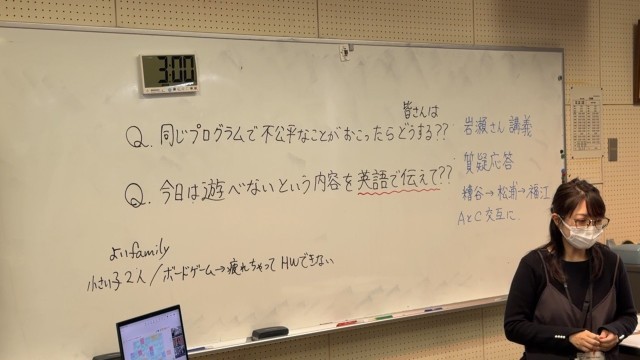 3:00
皆さんは
Q. 同じプログラムで不公平なことがおこったらどうする??
Q. 今日は遊べないという内容を英語で伝えて??
よいfamily
小さい子2人/ボードゲーム→疲れちゃってHWできない
岩瀬さん 講義
質疑応答
糟谷→松浦→福江
AとC 交互に.